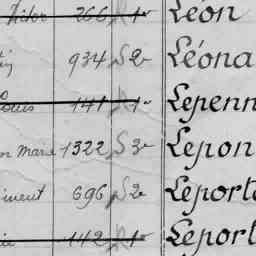 266 Léon
934 S 2º Léona
Louis 141 1º Lepenn
Marie 1322 S 3º Lepon
iment 696 S 2º Leport
142 1º Leport